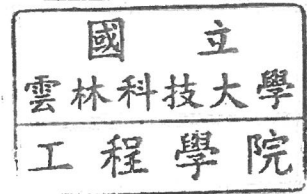 國立
雲林科技大學
工程學院